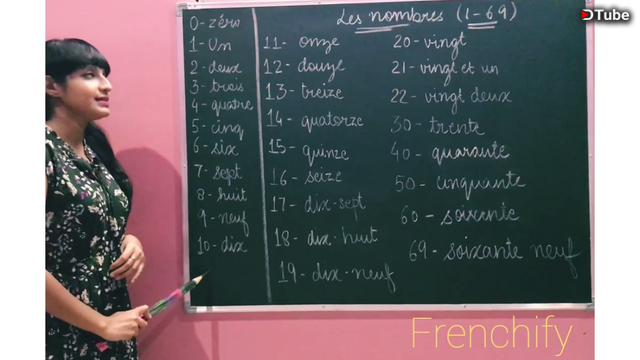 Les nombres (1-69)
0- zéro
1- un
2- deux
3- trois
4- quatre
5- cinq
6- six
7- sept
8- huit
9- neuf
10- dix
11- onze
12- douze
13- treize
14- quatorze
15- quinze
16- seize
17- dix-sept
18- dix-huit
19- dix-neuf
20- vingt
21- vingt et un
22- vingt deux
30- trente
40- quarante
50- cinquante
60- soixante
69- soixante neuf
DTube
Frenchify